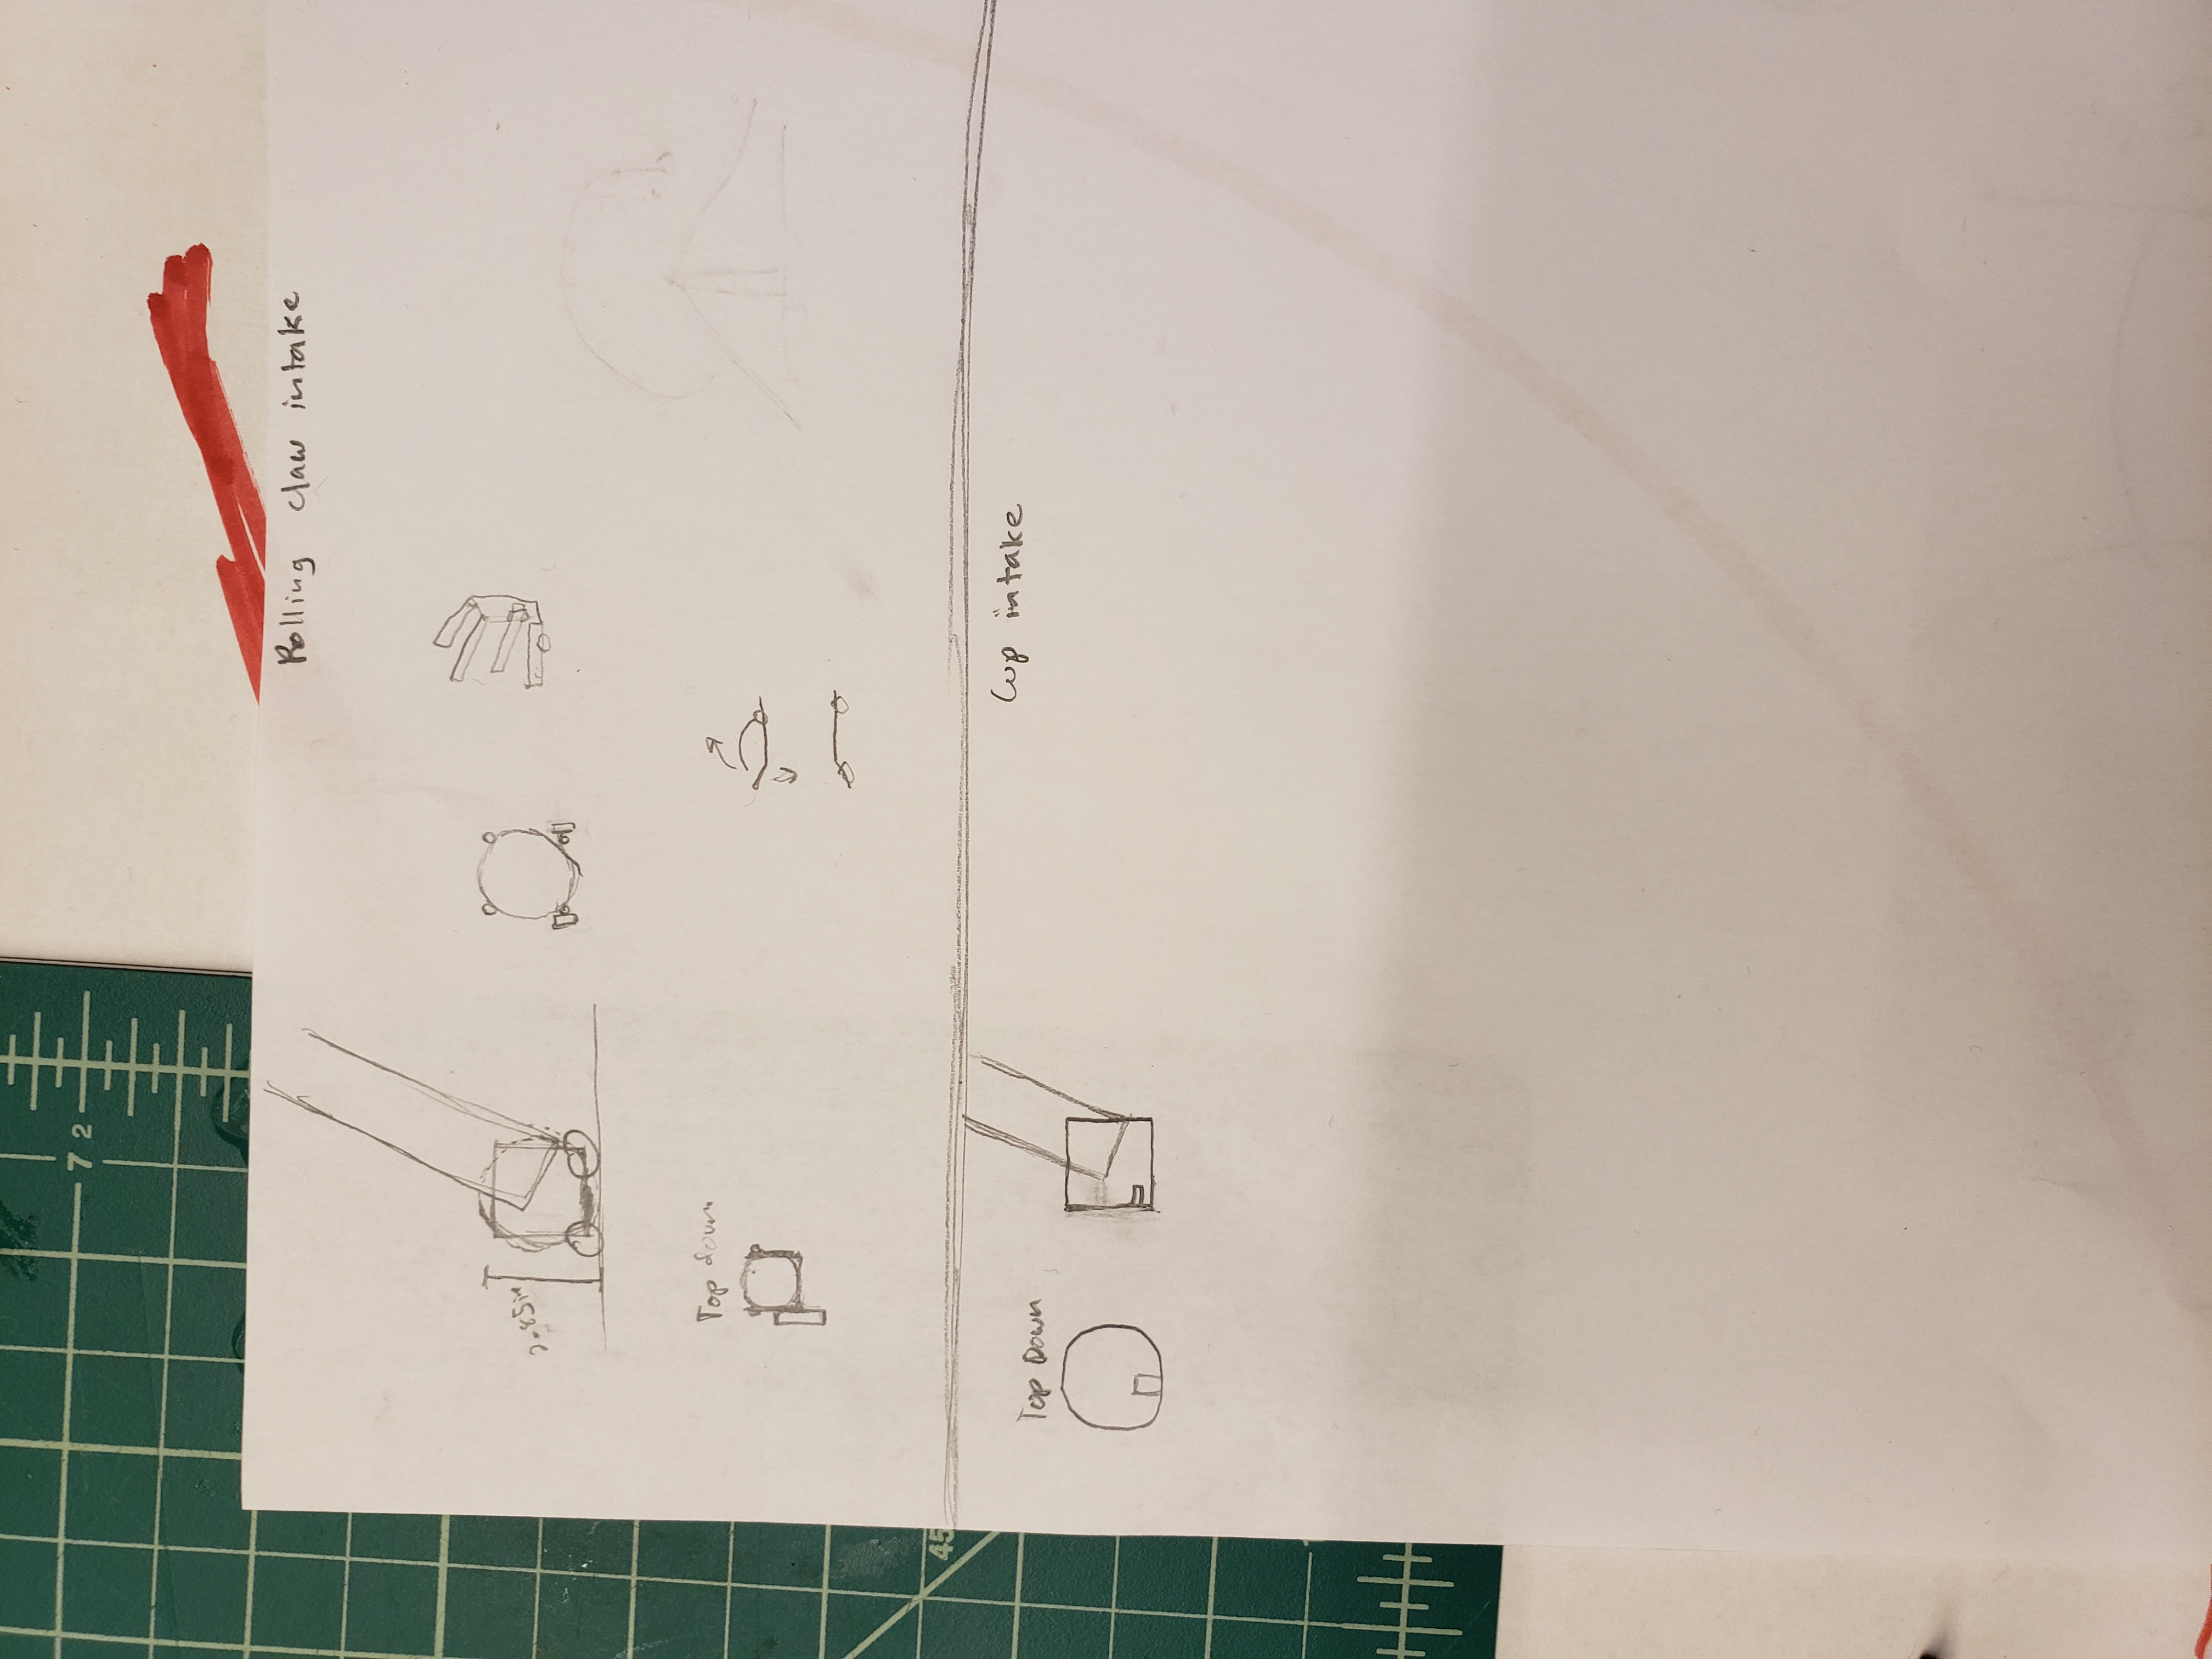 7 2
Rolling claw intake
Top down
45
Cup intake
Top Down